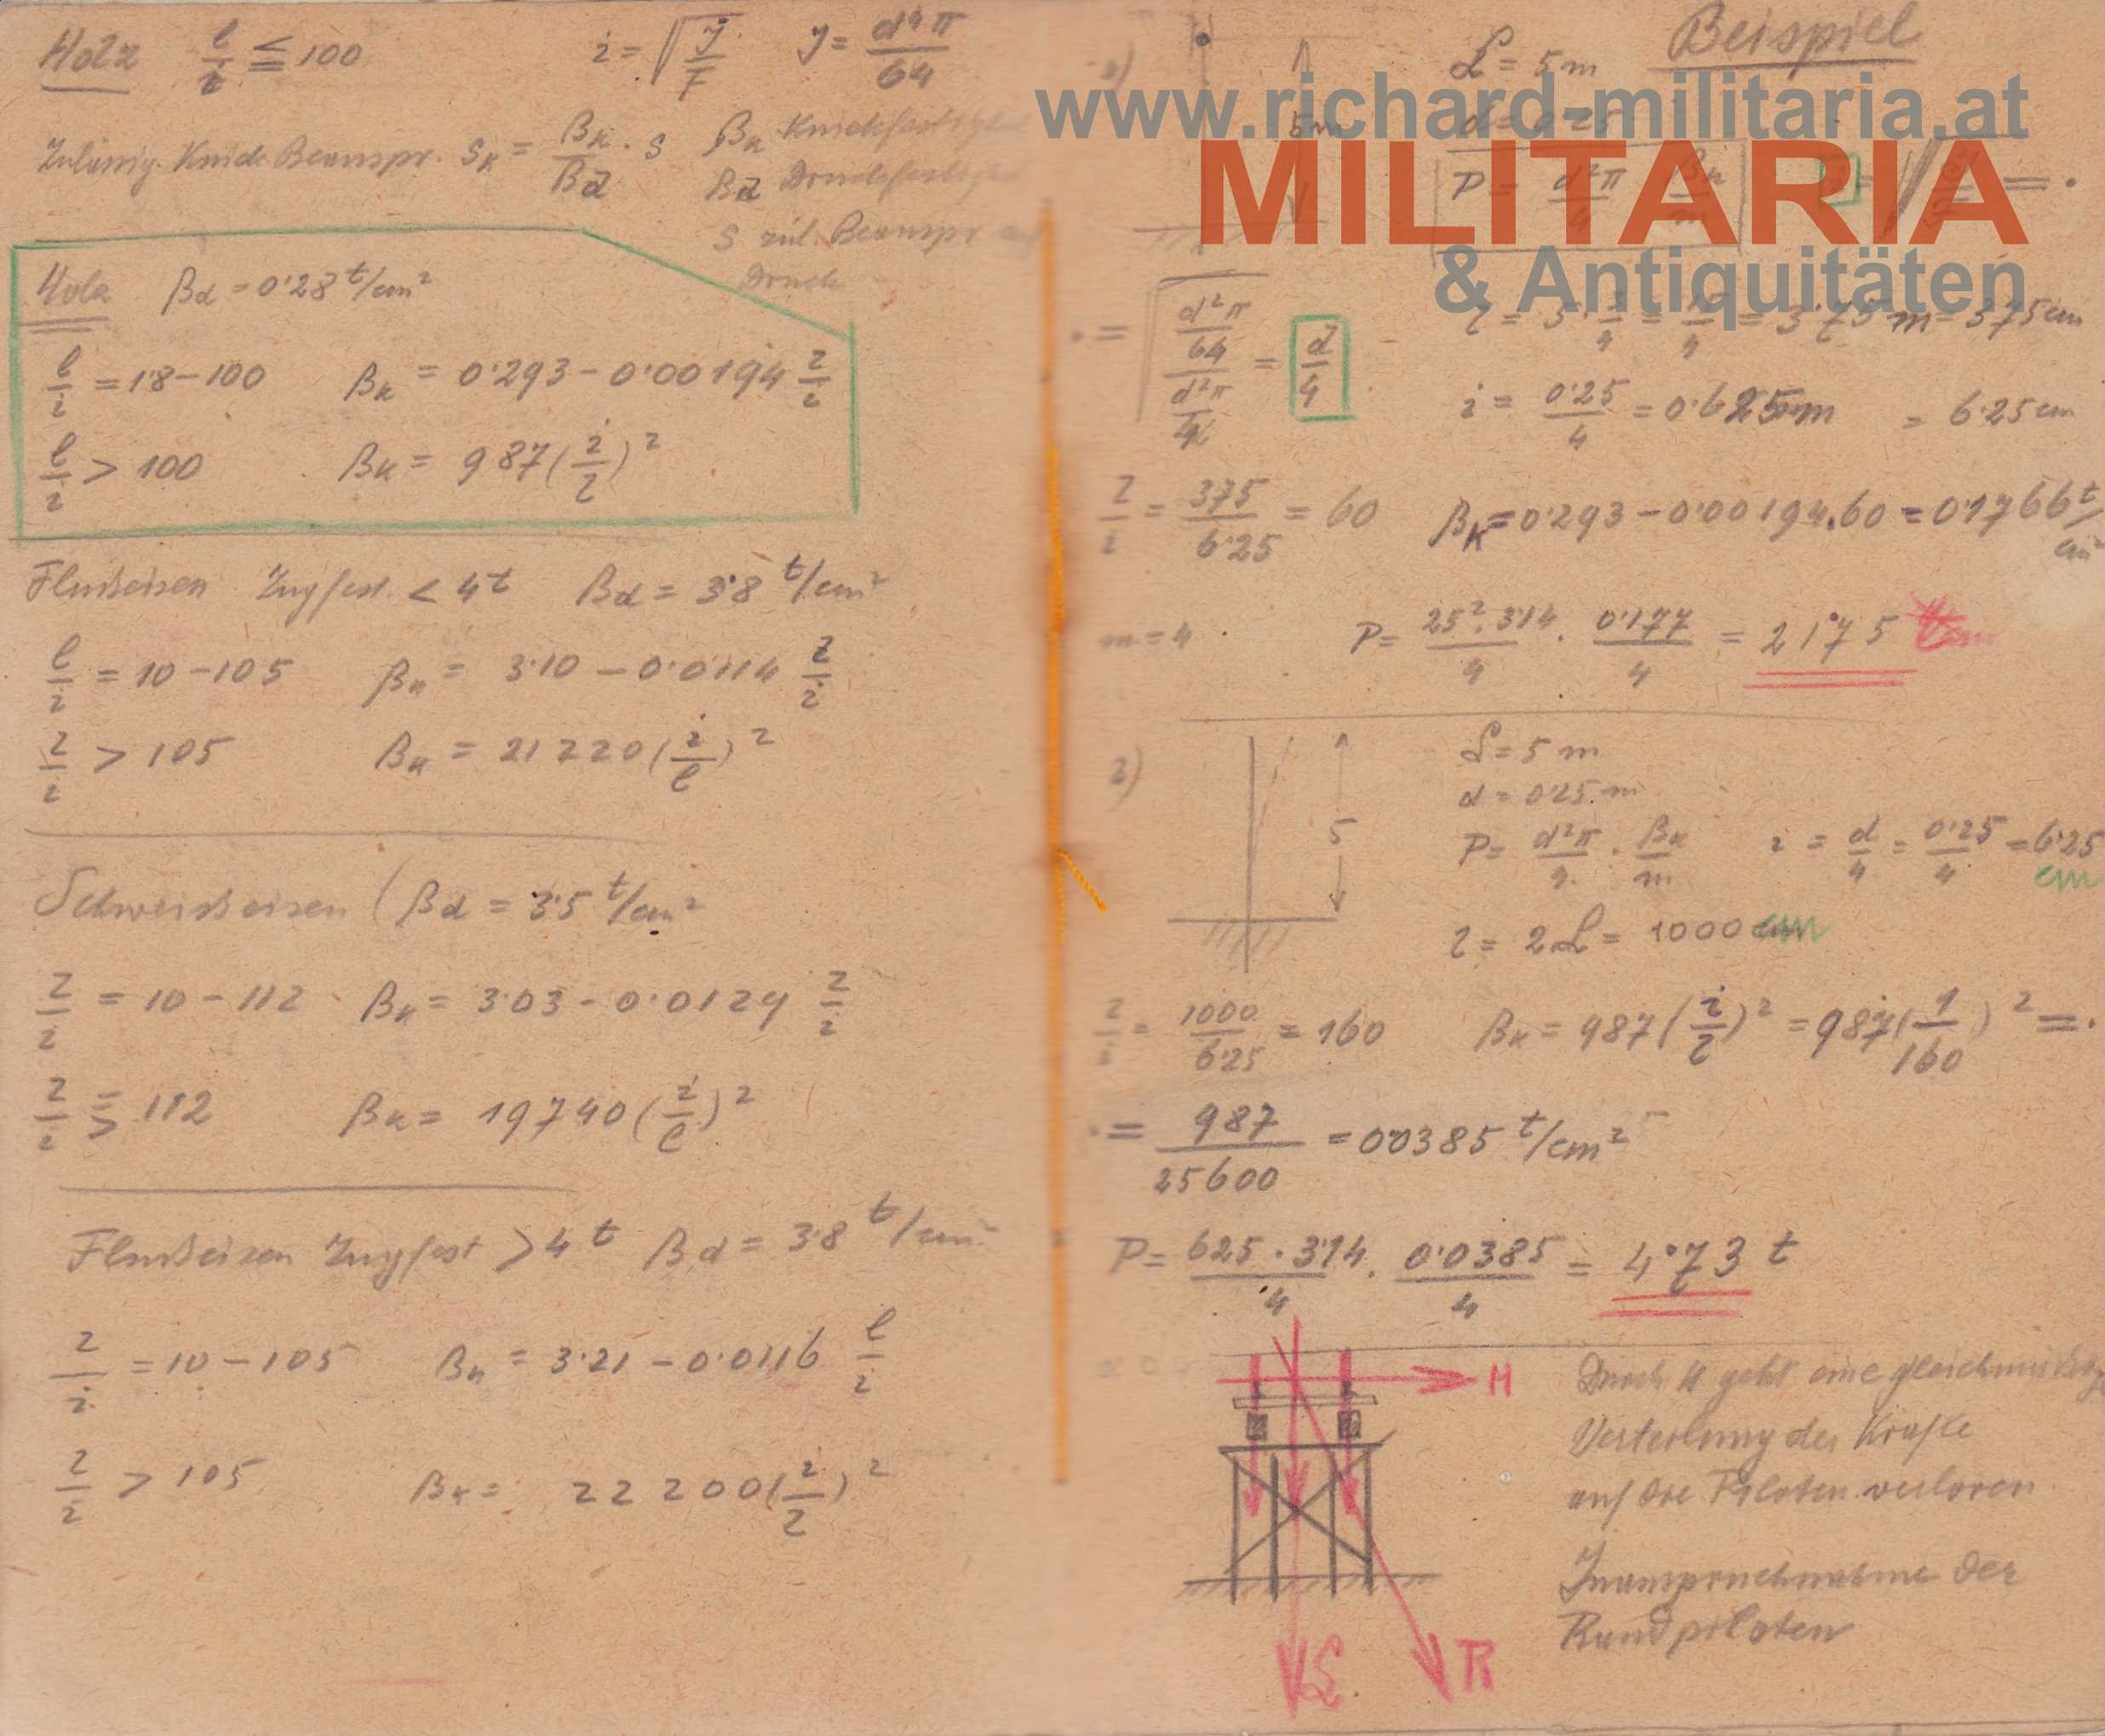 Holz l/i ≦ 100 i = √(J/F) J = d⁴π/64
Zulässig. Knick Beanspr. Sk = βk/βd · S βk Knickfestigkeit
βd Druckfestigkeit
S zul. Beanspr auf
Druck
Holz βd = 0·28 t/cm²
l/i = 1·8 – 100 βk = 0·293 – 0·00194 l/i
l/i > 100 βk = 987 (i/l)²
Flußeisen Zugfest. < 4t βd = 3·8 t/cm²
l/i = 10 – 105 βk = 3·10 – 0·0114 l/i
l/i > 105 βk = 21220 (i/l)²
Schweißeisen (βd = 3·5 t/cm²
l/i = 10 – 112 βk = 3·03 – 0·0129 l/i
l/i ≧ 112 βk = 19740 (i/l)²
Flußeisen Zugfest > 4t βd = 3·8 t/cm²
l/i = 10 – 105 βk = 3·21 – 0·0116 l/i
l/i > 105 βk = 22200 (i/l)²
Beispiel
L = 5 m
www.richard-militaria.at
MILITARIA
& Antiquitäten
5m
d = 0·25
P = d²π/4 βk/m i = √ = ·
· = √((d²π/64)/(d²π/4)) = d/4
l = 5 · 3/4 = 15/4 = 3·75 m = 375 cm
i = 0·25/4 = 0·625m = 6·25 cm
l/i = 375/6·25 = 60 βk = 0·293 – 0·00194·60 = 0·1766 t/cm²
m = 4 P = 25²·3·14/4 · 0·177/4 = 21·75
2)
5
L = 5 m
d = 0·25 m
P = d²π/4 · βk/m i = d/4 = 0·25/4 = 6·25 cm
l = 2L = 1000 cm
l/i = 1000/6·25 = 160 βk = 987 (i/l)² = 987 (1/160)² = ·
· = 987/25600 = 0·0385 t/cm²
P = 625·3·14/4 · 0·0385/4 = 4·73 t
H
Durch H geht eine gleichmäßige
Verteilung der Kräfte
auf die Piloten verloren
Inanspruchnahme der
Rundpiloten
R